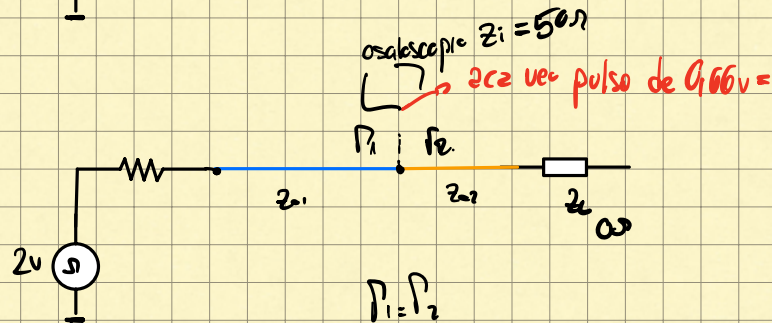 osciloscopio Zi = 50Ω
aca veo pulso de 0,66v =
Γ1 Γ2.
Zo1
Zo2
ZL
0Ω
2v
Γ1 = Γ2